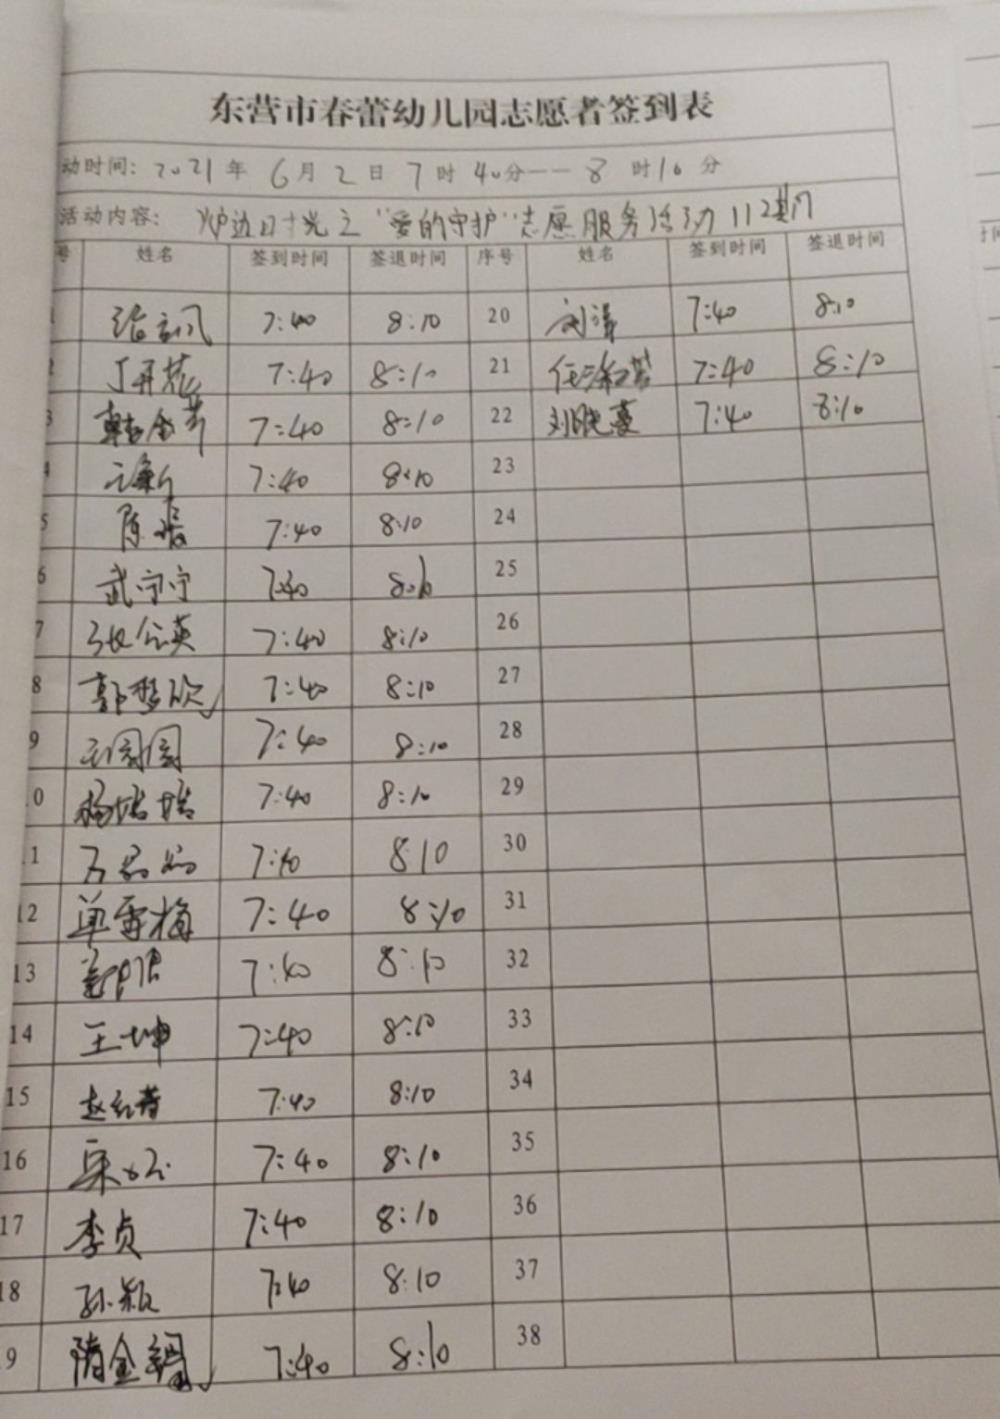 东营市春蕾幼儿园志愿者签到表
动时间: 2021年 6月 2日 7时 40分——8时10分
活动内容: 炉边时光之"爱的守护"志愿服务活动
号 姓名 签到时间 签退时间 序号 姓名 签到时间 签退时间
1 7:40 8:10 20 刘洋 7:40 8:10
2 7:40 8:10 21 7:40 8:10
3 7:40 8:10 22 刘晓蔓 7:40 8:10
4 7:40 8:10 23
5 陈 7:40 8:10 24
6 武宁宁 7:40 8:10 25
7 张 英 7:40 8:10 26
8 郭梦欣 7:40 8:10 27
9 王园园 7:40 8:10 28
10 杨培培 7:40 8:10 29
11 7:40 8:10 30
12 单雪梅 7:40 8:10 31
13 7:40 8:10 32
14 王坤 7:40 8:10 33
15 赵红 7:40 8:10 34
16 7:40 8:10 35
17 李贞 7:40 8:10 36
18 孙颖 7:40 8:10 37
9 隋金 7:40 8:10 38